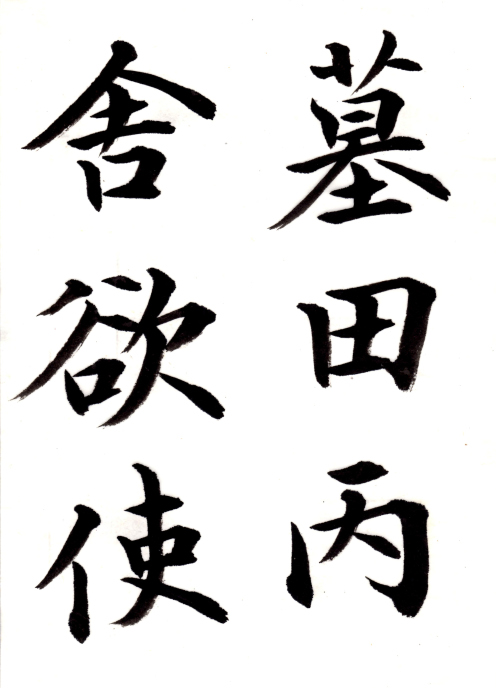 墓田丙
舍欲使